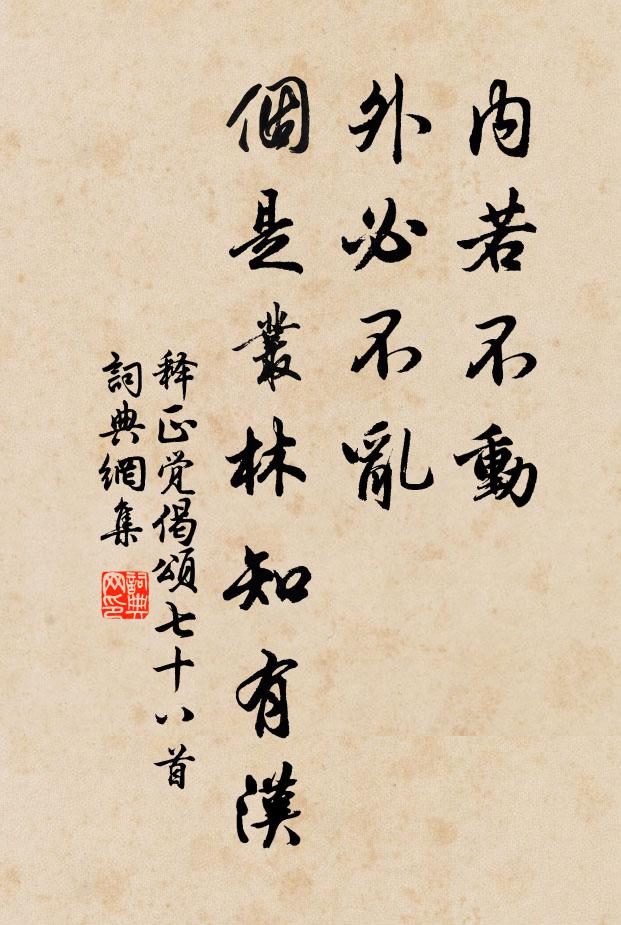 内若不動
外必不亂
個是叢林知有漢
释正觉偈頌七十八首
詞典網集
詞典网印